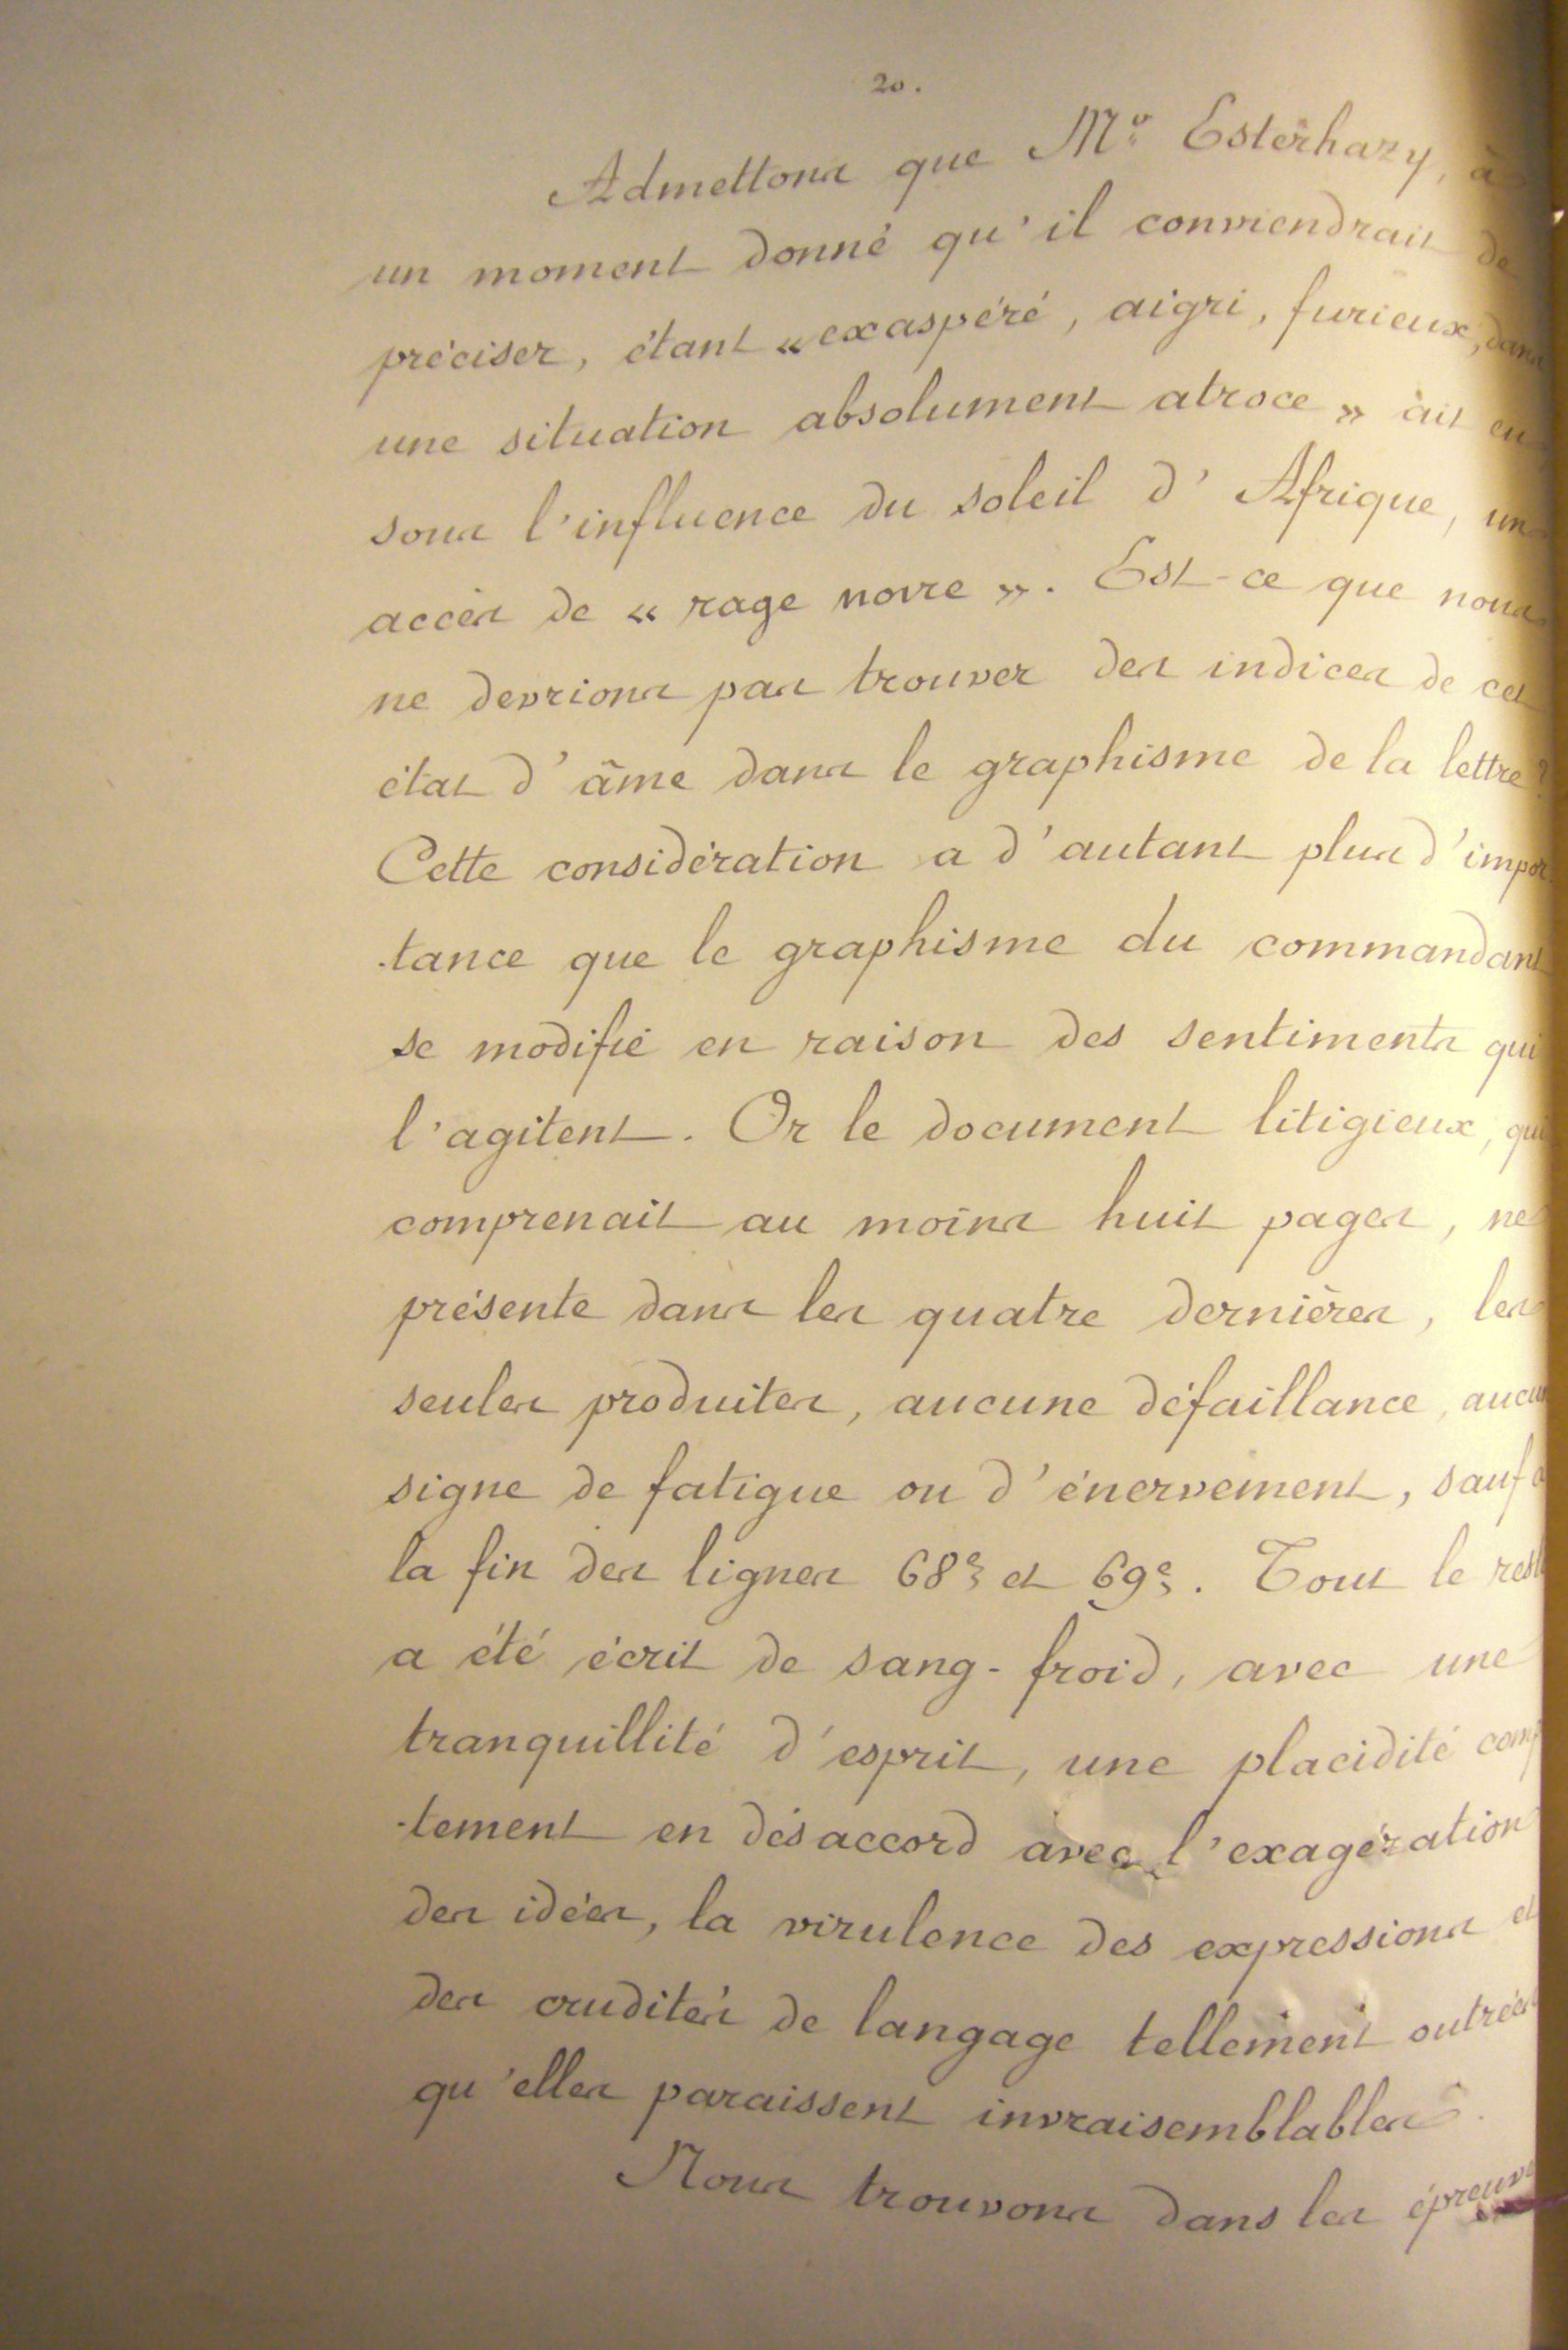 20.
Admettons que Mr Esterhazy, à
un moment donné qu'il conviendrait de
préciser, étant « exaspéré, aigri, furieux, dans
une situation absolument atroce » ait eu,
sous l'influence du soleil d'Afrique, un
accès de « rage noire ». Est-ce que nous
ne devrions pas trouver des indices de cet
état d'âme dans le graphisme de la lettre ?
Cette considération a d'autant plus d'impor-
-tance que le graphisme du commandant
se modifie en raison des sentiments qui
l'agitent. Or le document litigieux, qui
comprenait au moins huit pages, ne
présente dans les quatre dernières, les
seules produites, aucune défaillance, aucun
signe de fatigue ou d'énervement, sauf à
la fin des lignes 68e et 69e. Tout le reste
a été écrit de sang-froid, avec une
tranquillité d'esprit, une placidité comp
-tement en désaccord avec l'exagération
des idées, la virulence des expressions et
des crudités de langage tellement outrées
qu'elles paraissent invraisemblables.
Nous trouvons dans les épreuve